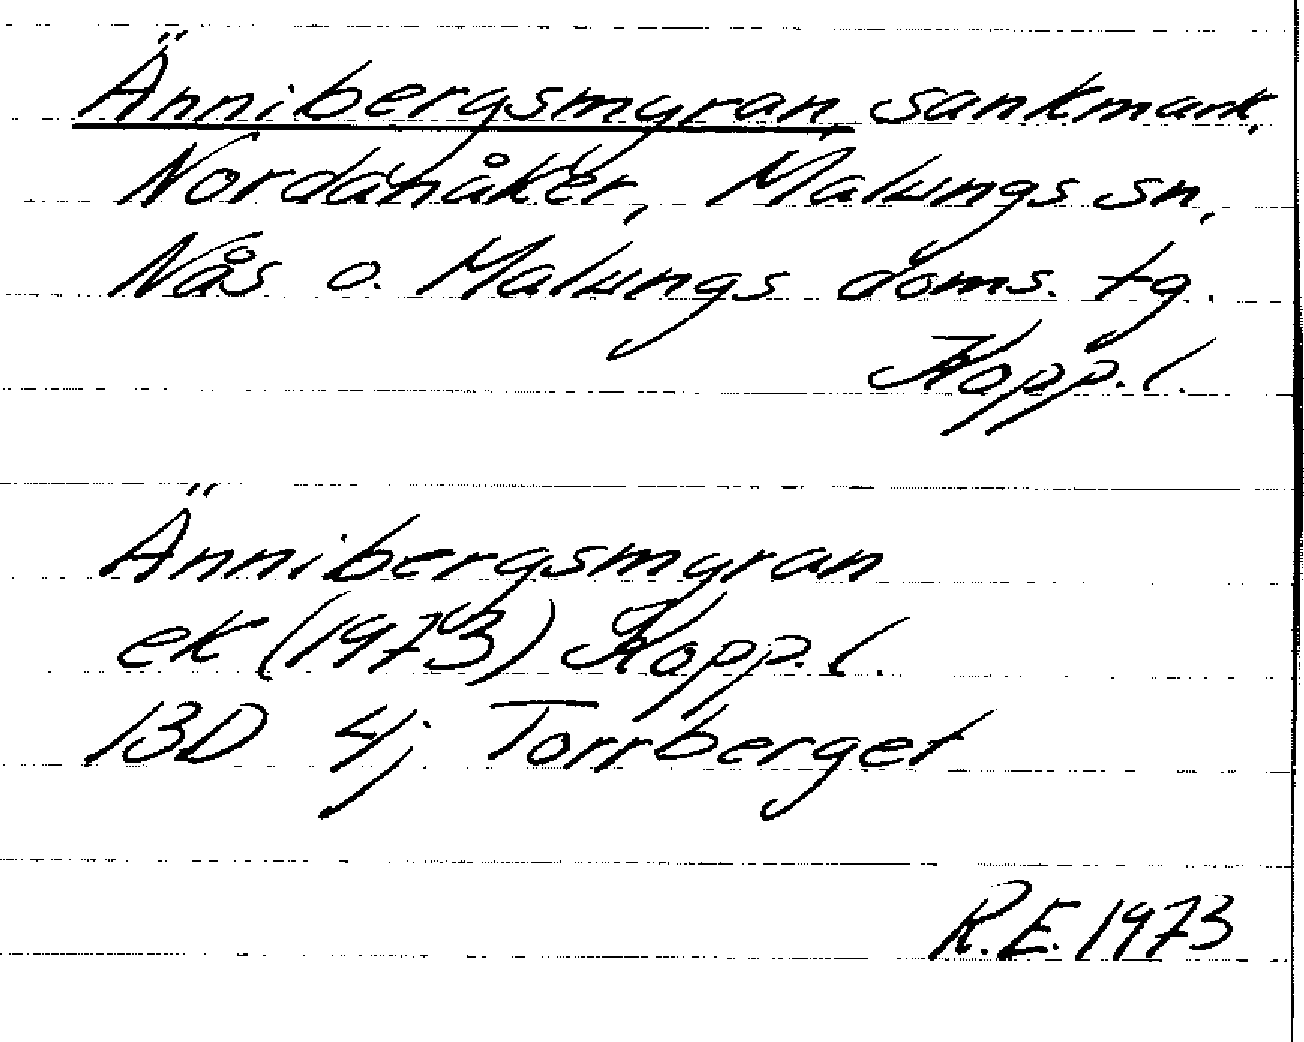 Ännibergsmyran, sankmark,
Nordanåker, Malungs sn,
Nås o. Malungs doms. tg.
Kopp. l.
Ännibergsmyran
ek (1973) Kopp. l.
13D 4j Torrberget
R.E. 1973